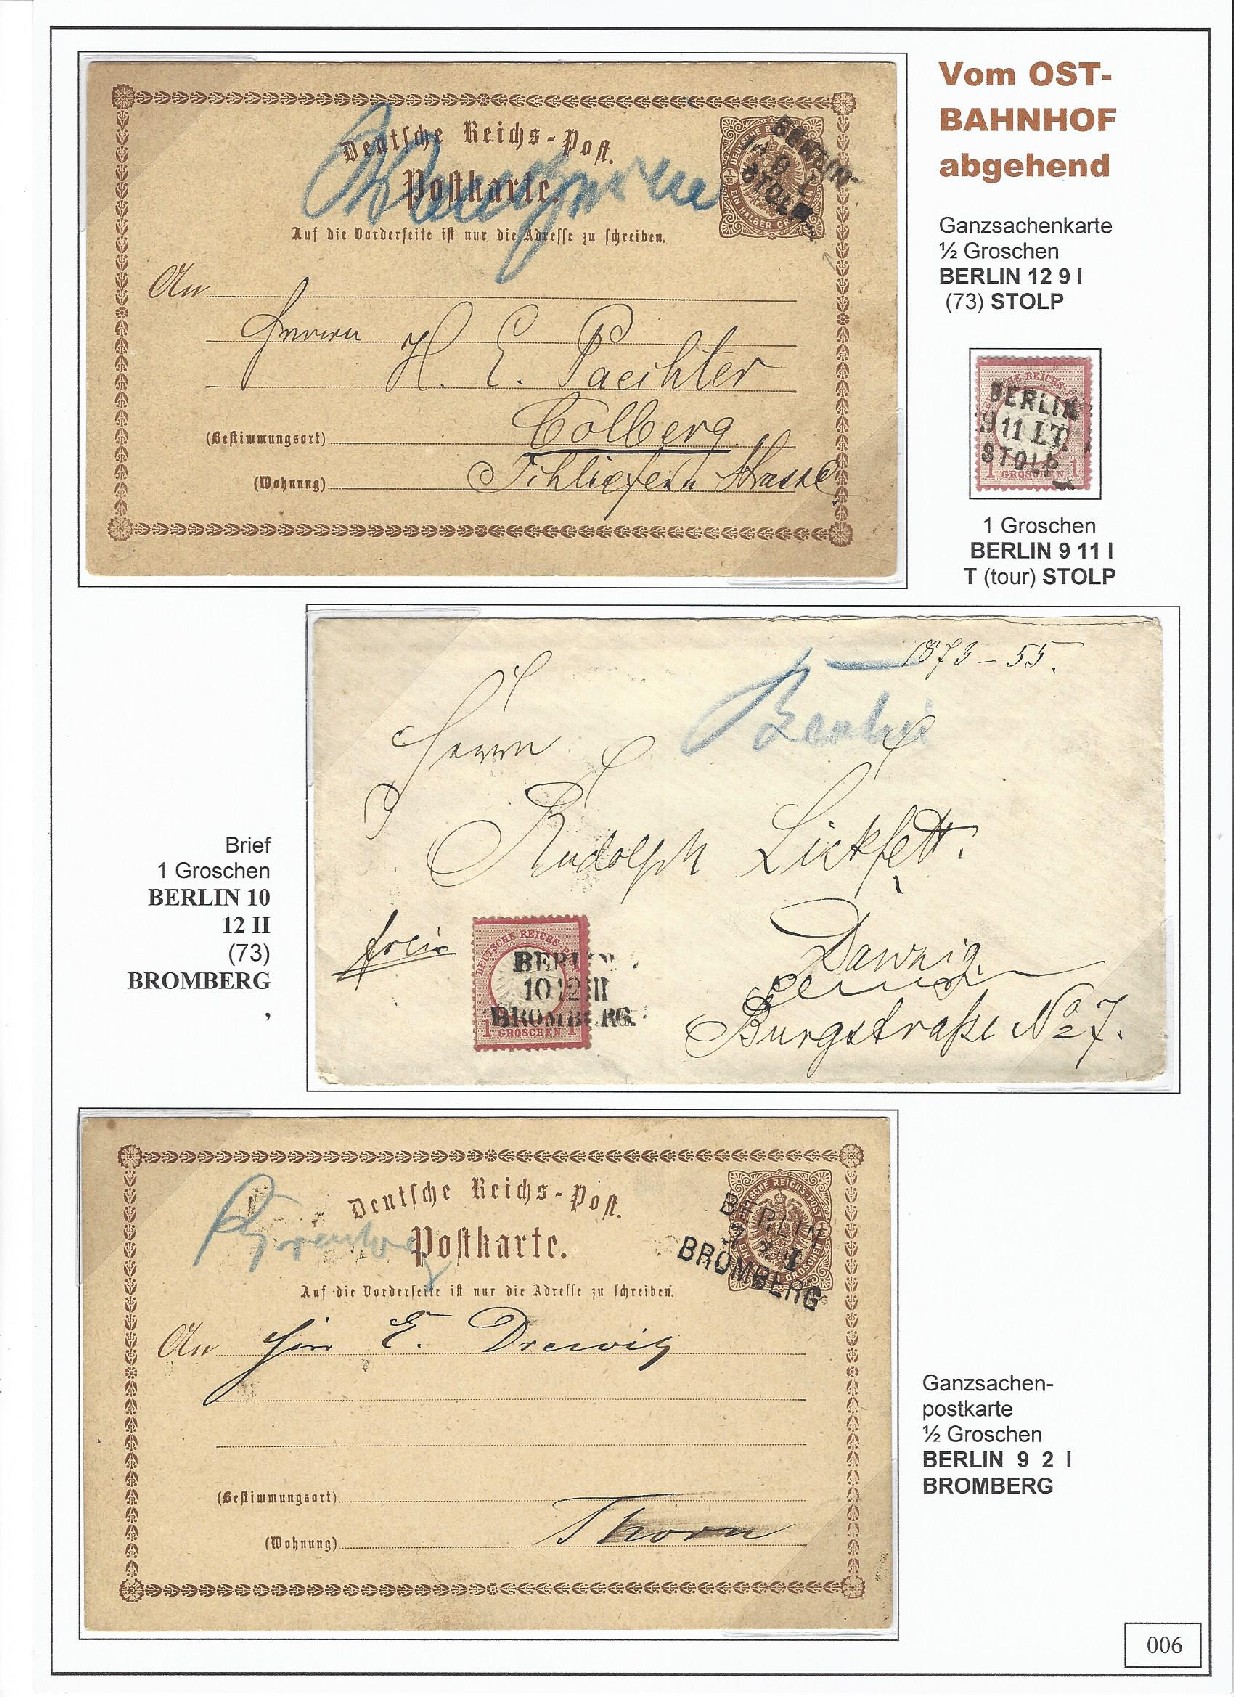 Vom OST-
BAHNHOF
abgehend
Ganzsachenkarte
½ Groschen
BERLIN 12 9 I
(73) STOLP
Deutsche Reichs-Post.
Postkarte.
Auf die Vorderseite ist nur die Adresse zu schreiben.
BERLIN-
STOLP
An
Herrn
H. E. Paechter
(Bestimmungsort) Colberg
(Wohnung) Schliefen Strasse
BERLIN
9 11 I.T.
STOLP
1 GROSCHEN 1
1 Groschen
BERLIN 9 11 I
T (tour) STOLP
1873-55.
Herrn
Rudolph Lickfett.
frei
Danzig.
Burgstraße No 7.
DEUTSCHE REICHS-
BERLIN
10 12 II
BROMBERG.
1 GROSCHEN
Brief
1 Groschen
BERLIN 10
12 II
(73)
BROMBERG
,
Deutsche Reichs-Post.
Postkarte.
Auf die Vorderseite ist nur die Adresse zu schreiben.
BERLIN
I
BROMBERG
An Herrn E. Drewitz
(Bestimmungsort)
Thorn
(Wohnung)
Ganzsachen-
postkarte
½ Groschen
BERLIN 9 2 I
BROMBERG
006